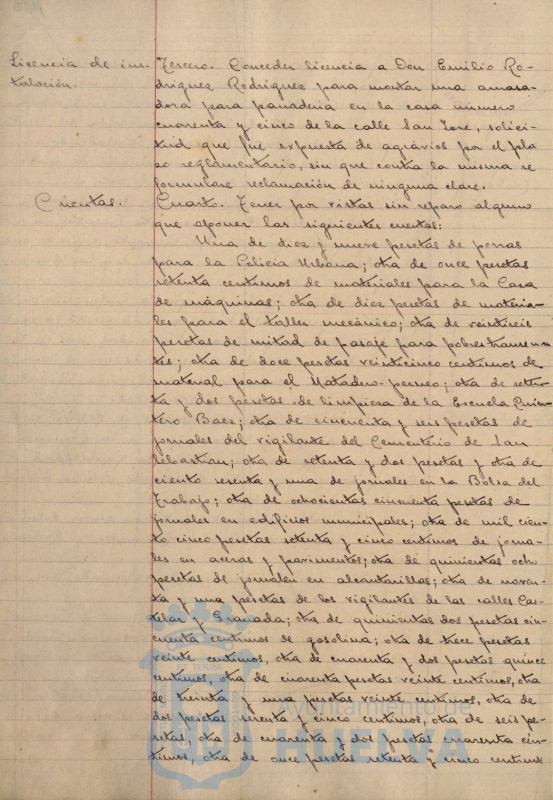 Licencia de ins-
talación.
Tercero. Conceder licencia a Don Emilio Ro-
driguez Rodriguez para montar una amasa-
dora para panaderia en la casa número
cuarenta y cinco de la calle San José, solici-
tud que fué expuesta de agrávios por el pla-
zo reglamentario, sin que contra la misma se
formulare reclamación de ninguna clase.
Cuentas.
Cuarto. Tener por vistas sin reparo alguno
que oponer las siguientes cuentas:
Una de diez y nueve pesetas de porras
para la Policia Urbana; otra de once pesetas
setenta centimos de materiales para la Casa
de máquinas; otra de diez pesetas de materia-
les para el taller mecánico; otra de veintiseis
pesetas de mitad de pasaje para pobres transeun-
tes; otra de doce pesetas veinticinco centimos de
material para el Matadero perneo; otra de seten-
ta y dos pesetas de limpieza de la Escuela Quin-
tero Baez; otra de cincuenta y seis pesetas de
jornales del vigilante del Cementerio de San
Sebastian; otra de setenta y dos pesetas y otra de
ciento sesenta y una de jornales en la Bolsa del
Trabajo; otra de ochocientas cincuenta pesetas de
jornales en edificios municipales; otra de mil cien-
to cinco pesetas setenta y cinco centimos de jorna-
les en aceras y pavimentos; otra de quinientas ocho
pesetas de jornales en alcantarillas; otra de noven-
ta y una pesetas de los vigilantes de las calles Cas-
telar y Granada; otra de quinientas dos pesetas cin-
cuenta centimos de gasolina; otra de trece pesetas
veinte centimos, otra de cuarenta y dos pesetas quince
centimos, otra de cuarenta pesetas veinte centimos, otra
de treinta y una pesetas veinte centimos, otra de
dos pesetas setenta y cinco centimos, otra de seis pe-
setas, otra de cuarenta y dos pesetas cuarenta cen-
timos, otra de once pesetas setenta y cinco centimos
TERRA
Ayuntamiento de
HUELVA